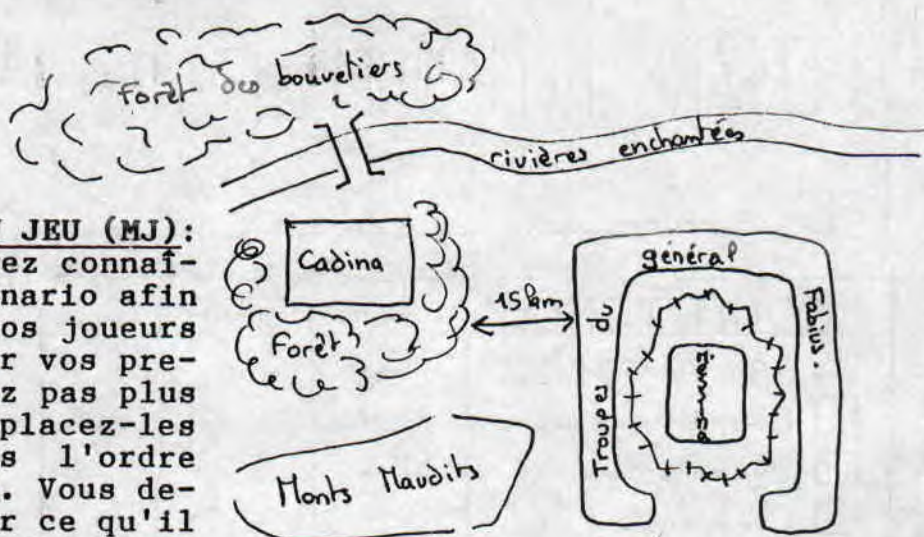 Forêt des bouvetiers
rivières enchantées
U JEU (MJ):
ez connaî-
nario afin
os joueurs
r vos pre-
z pas plus
placez-les
s l'ordre
. Vous de-
r ce qu'il
Cadina
Forêt
15 km
Monts Maudits
Troupes du
général
Fabius.